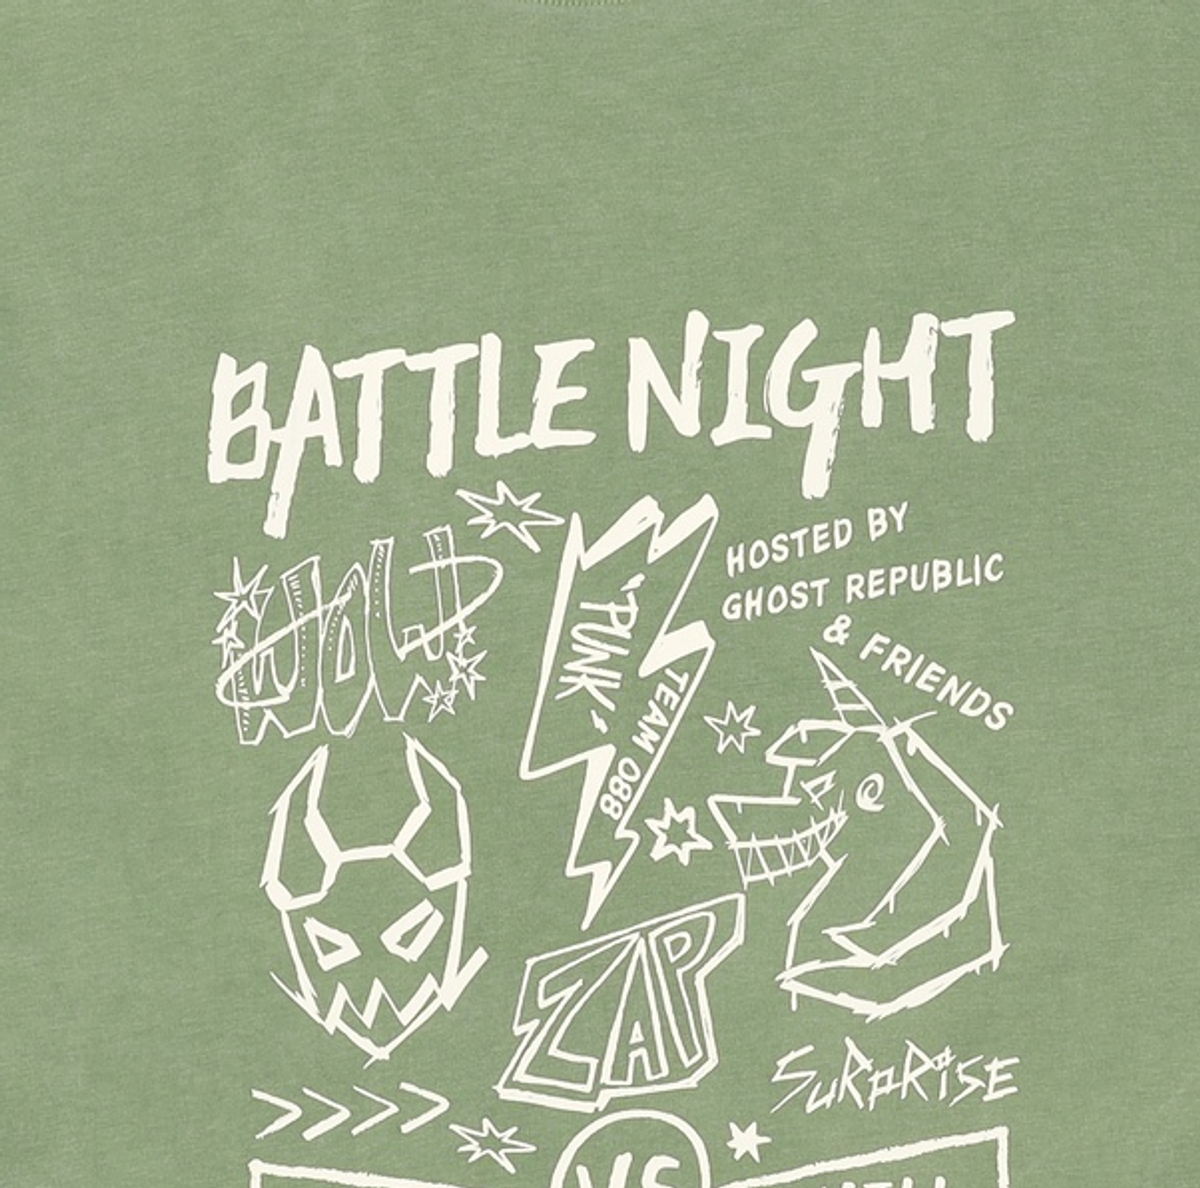 BATTLE NIGHT
WOW
'PUNK'
TEAM 088
HOSTED BY
GHOST REPUBLIC
& FRIENDS
ZAP
SuRpRiSE
>>>>
VS